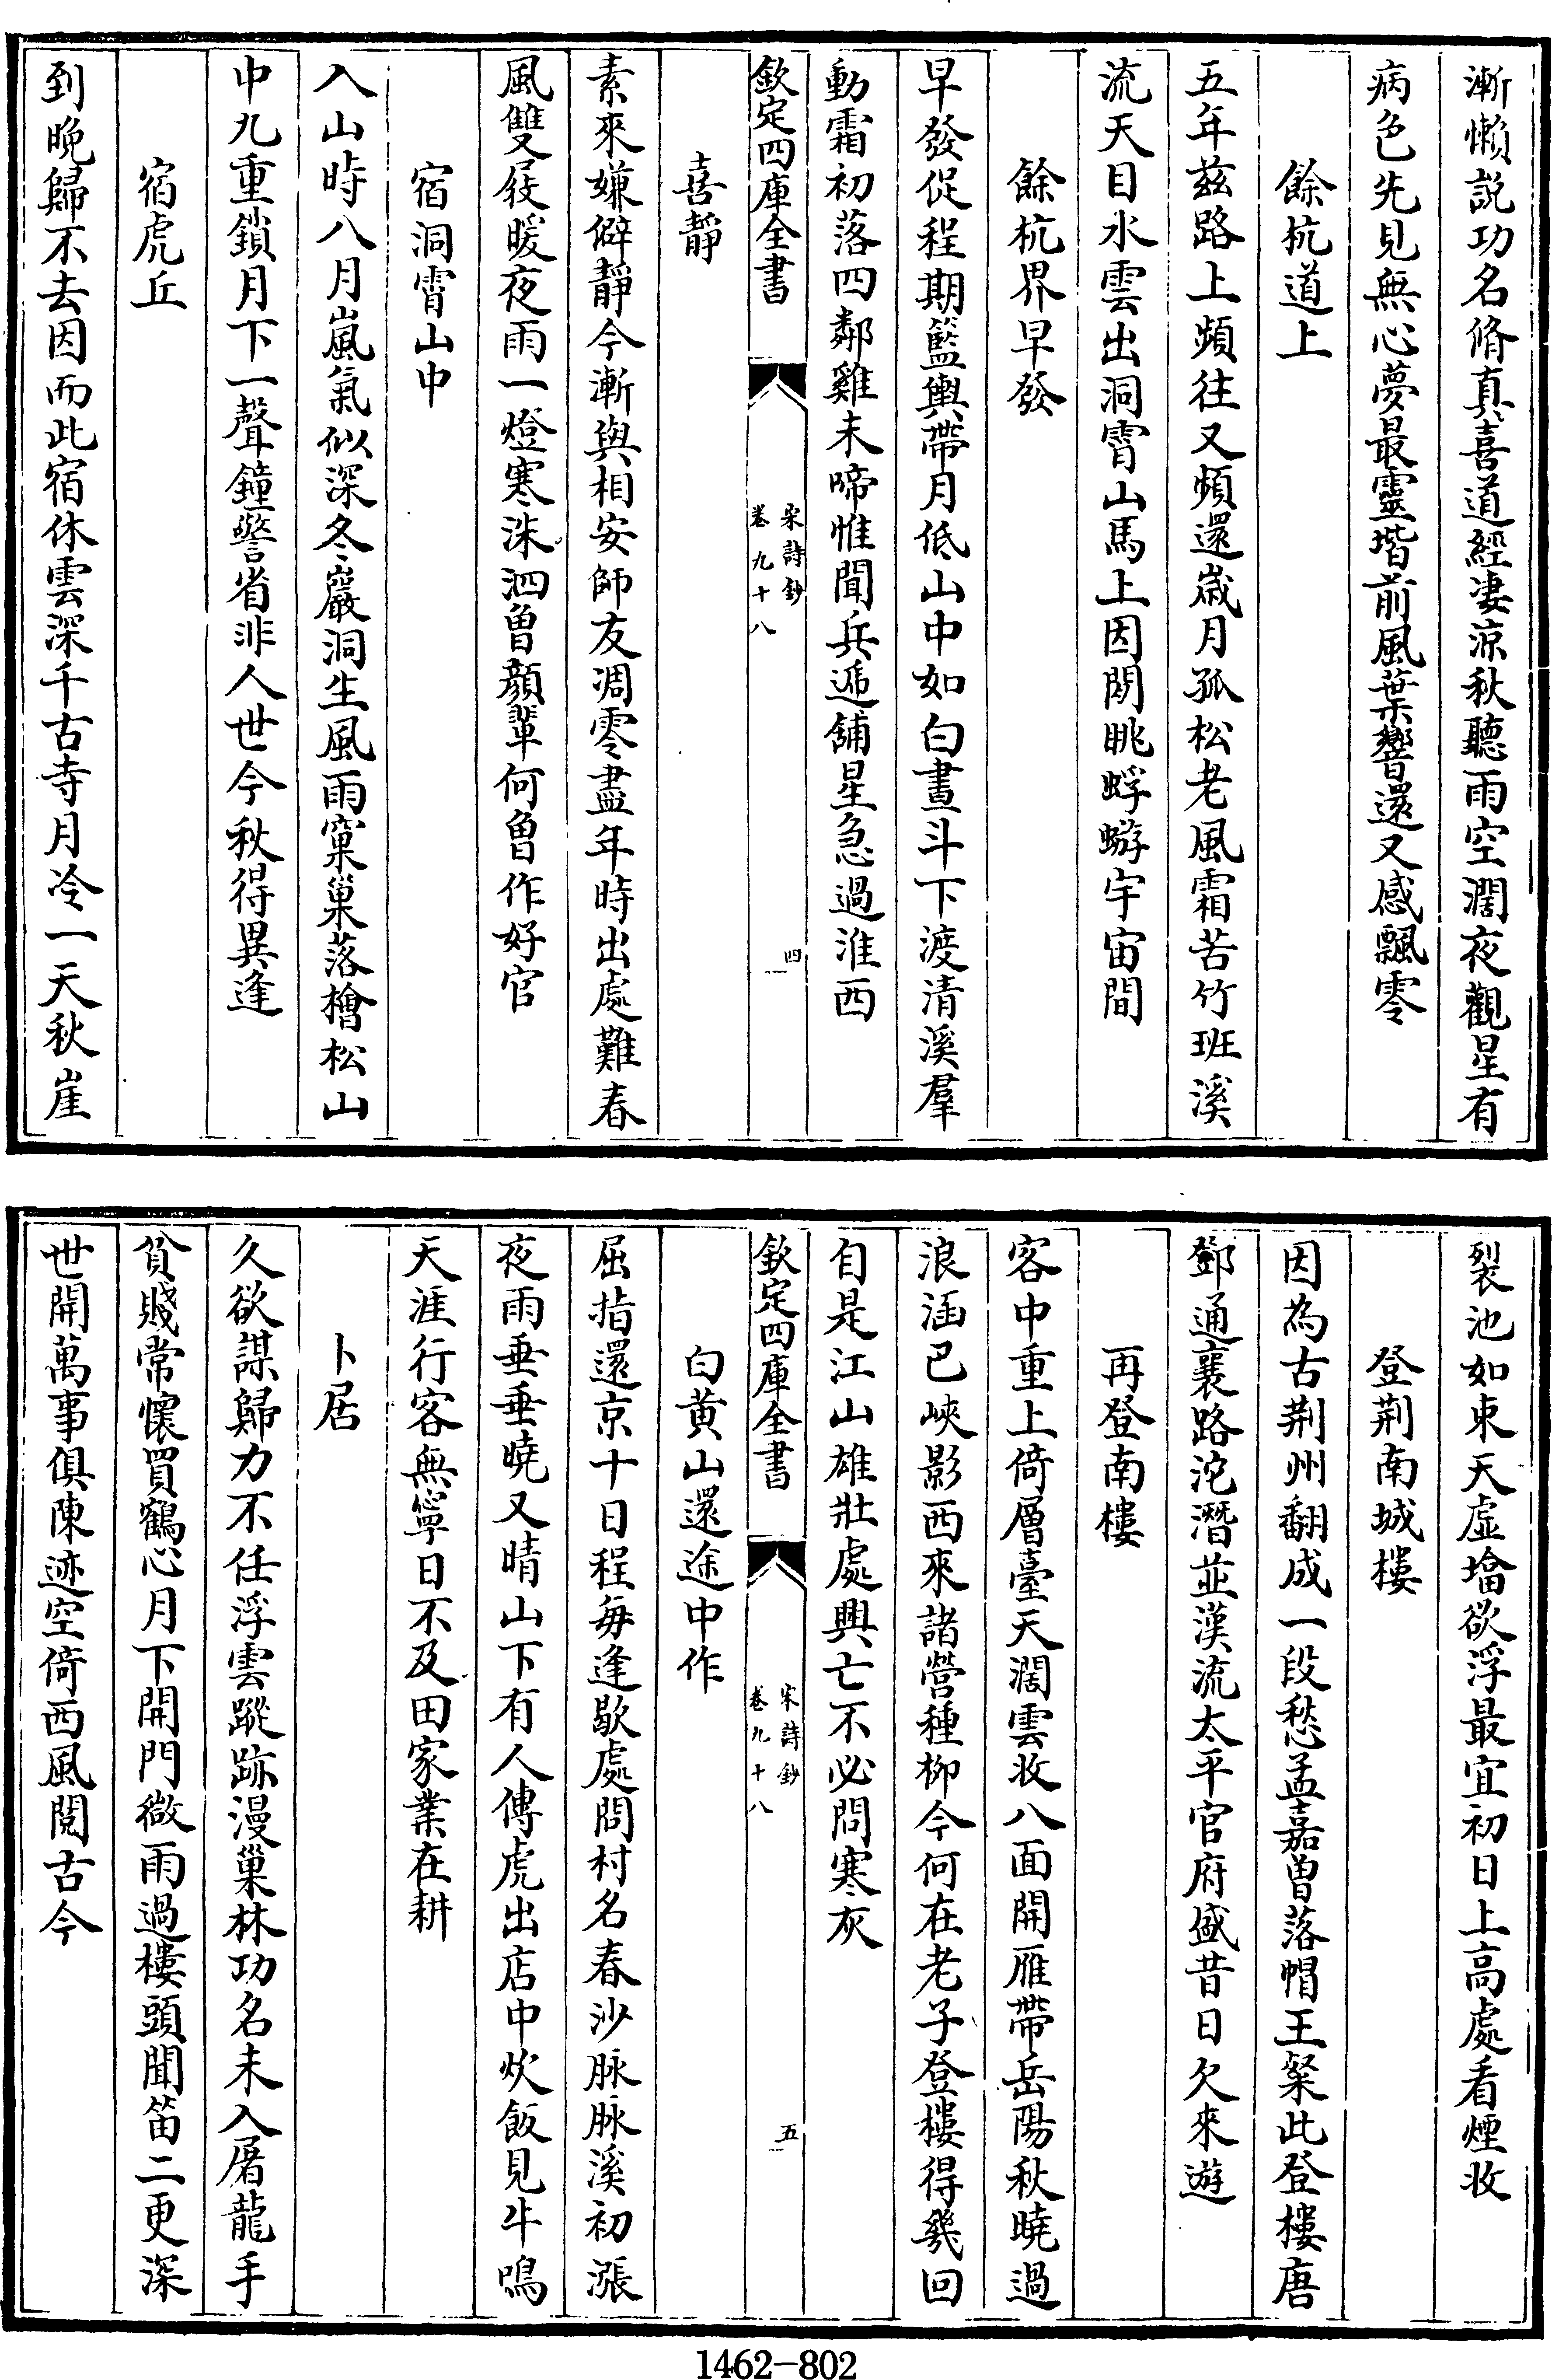 漸懶説功名脩真喜道經凄涼秋聽雨空濶夜觀星有
病色先見無心夢最靈堦前風葉響還又感飄零
餘杭道上
五年兹路上頻往又頻還嵗月孤松老風霜苦竹班溪
流天目水雲出洞霄山馬上因閒眺蜉蝣宇宙間
餘杭界早發
早發促程期籃輿帶月低山中如白晝斗下渡清溪羣
動霜初落四鄰雞未啼惟聞兵遞舖星急過淮西
欽定四庫全書
宋詩鈔
卷九十八
四
喜靜
素來嫌僻靜今漸與相安師友凋零盡年時出處難春
風雙屐暖夜雨一燈寒洙泗曽顔輩何曽作好官
宿洞霄山中
入山時八月嵐氣似深冬巖洞生風雨窠巢落檜松山
中九重鎖月下一聲鐘警省非人世今秋得異逢
宿虎丘
到晩歸不去因而此宿休雲深千古寺月冷一天秋崖
裂池如束天虚㙮欲浮最宜初日上高處看煙收
登荆南城樓
因為古荆州翻成一段愁孟嘉曽落帽王粲此登樓唐
鄧通襄路沱潛並漢流太平官府盛昔日欠來遊
再登南樓
客中重上倚層臺天濶雲收八面開雁帶岳陽秋曉過
浪涵巴峽影西來諸營種柳今何在老子登樓得幾回
自是江山雄壯處興亡不必問寒灰
欽定四庫全書
宋詩鈔
卷九十八
五
白黄山還途中作
屈指還京十日程毎逢歇處問村名春沙脉脉溪初漲
夜雨垂垂曉又晴山下有人傳虎出店中炊飯見牛鳴
天涯行客無寧日不及田家業在耕
卜居
久欲謀歸力不任浮雲蹤跡漫巢林功名未入屠龍手
貧賤常懷買鶴心月下開門微雨過樓頭聞笛二更深
世間萬事俱陳迹空倚西風閲古今
1462-802